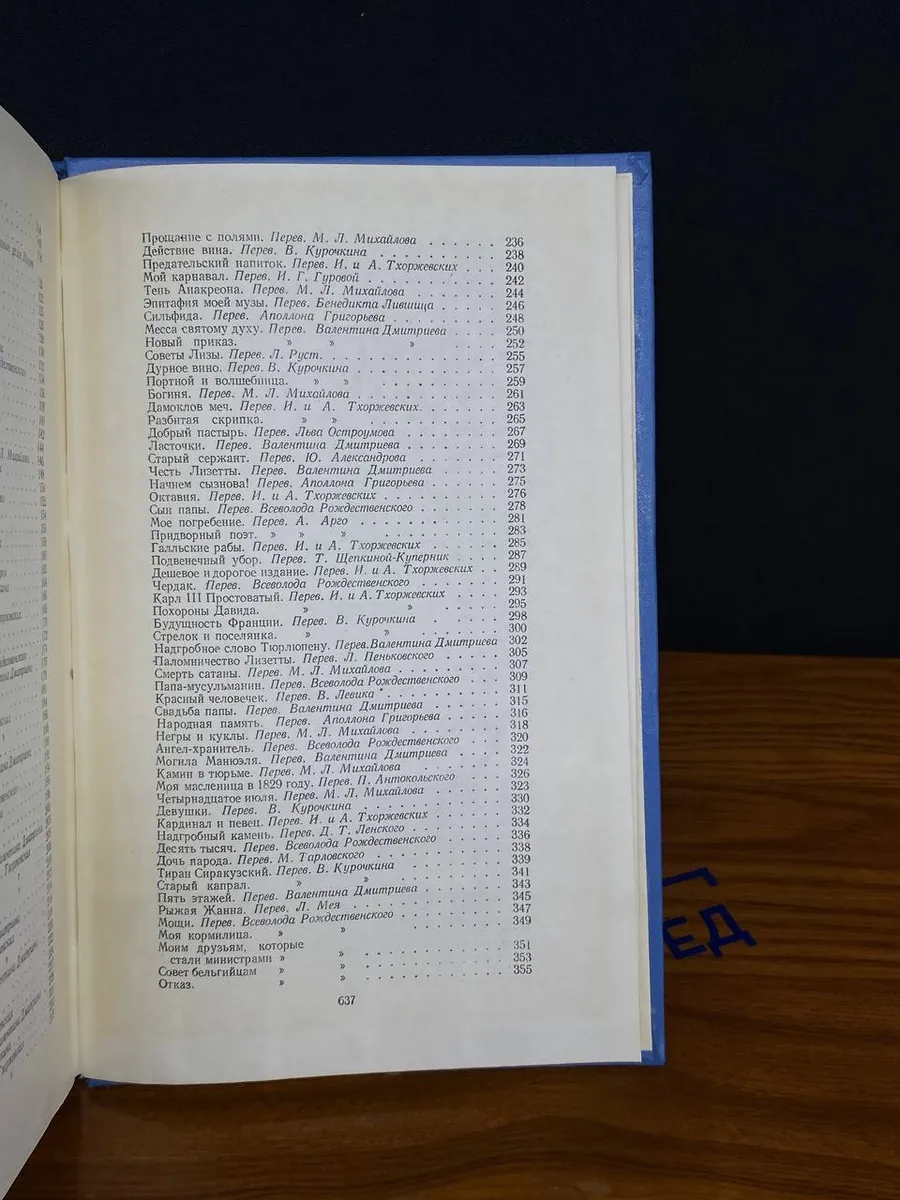 Прощание с полями. Перев. М. Л. Михайлова . . . . . . 236
Действие вина. Перев. В. Курочкина . . . . . . . . . 238
Предательский напиток. Перев. И. и А. Тхоржевских . . . 240
Мой карнавал. Перев. И. Г. Гуровой . . . . . . . . . 242
Тень Анакреона. Перев. М. Л. Михайлова . . . . . . . 244
Эпитафия моей музы. Перев. Бенедикта Лившица . . . . 246
Сильфида. Перев. Аполлона Григорьева . . . . . . . . 248
Месса святому духу. Перев. Валентина Дмитриева . . . . 250
Новый приказ. » » » . . . . 252
Советы Лизы. Перев. Л. Руст. . . . . . . . . . . . 255
Дурное вино. Перев. В. Курочкина . . . . . . . . . 257
Портной и волшебница. » » . . . . . . . . . 259
Богиня. Перев. М. Л. Михайлова . . . . . . . . . . 261
Дамоклов меч. Перев. И. и А. Тхоржевских. . . . . . . 263
Разбитая скрипка. » » . . . . . . . 265
Добрый пастырь. Перев. Льва Остроумова . . . . . . . 267
Ласточки. Перев. Валентина Дмитриева . . . . . . . . 269
Старый сержант. Перев. Ю. Александрова . . . . . . . 271
Честь Лизетты. Перев. Валентина Дмитриева . . . . . . 273
Начнем сызнова! Перев. Аполлона Григорьева . . . . . . 275
Октавия. Перев. И. и А. Тхоржевских . . . . . . . . 276
Сын папы. Перев. Всеволода Рождественского . . . . . . 278
Мое погребение. Перев. А. Арго . . . . . . . . . . 281
Придворный поэт. » » » . . . . . . . . . 283
Галльские рабы. Перев. И. и А. Тхоржевских . . . . . . 285
Подвенечный убор. Перев. Т. Щепкиной-Куперник . . . . 287
Дешевое и дорогое издание. Перев. И. и А. Тхоржевских . . . 289
Чердак. Перев. Всеволода Рождественского . . . . . . . 291
Карл III Простоватый. Перев. И. и А. Тхоржевских . . . . 293
Похороны Давида. » » . . . . 295
Будущность Франции. Перев. В. Курочкина . . . . . . 298
Стрелок и поселянка. » » . . . . . . 300
Надгробное слово Тюрлюпену. Перев. Валентина Дмитриева 302
Паломничество Лизетты. Перев. Л. Пеньковского . . . . . 305
Смерть сатаны. Перев. М. Л. Михайлова . . . . . . . 307
Папа-мусульманин. Перев. Всеволода Рождественского . . . 309
Красный человечек. Перев. В. Левика . . . . . . . . 311
Свадьба папы. Перев. Валентина Дмитриева . . . . . . 315
Народная память. Перев. Аполлона Григорьева . . . . . 316
Негры и куклы. Перев. М. Л. Михайлова . . . . . . . 318
Ангел-хранитель. Перев. Всеволода Рождественского . . . . 320
Могила Манюэля. Перев. Валентина Дмитриева . . . . . 322
Камин в тюрьме. Перев. М. Л. Михайлова . . . . . . . 324
Моя масленица в 1829 году. Перев. П. Антокольского . . . . 326
Четырнадцатое июля. Перев. М. Л. Михайлова . . . . . . 323
Девушки. Перев. В. Курочкина . . . . . . . . . . . 330
Кардинал и певец. Перев. И. и А. Тхоржевских . . . . . 332
Надгробный камень. Перев. Д. Т. Ленского . . . . . . . 334
Десять тысяч. Перев. Всеволода Рождественского . . . . . 336
Дочь народа. Перев. М. Тарловского . . . . . . . . . 338
Тиран Сиракузский. Перев. В. Курочкина . . . . . . . 339
Старый капрал. » » . . . . . . . 341
Пять этажей. Перев. Валентина Дмитриева . . . . . . . 343
Рыжая Жанна. Перев. Л. Мея . . . . . . . . . . . 345
Мощи. Перев. Всеволода Рождественского . . . . . . . 347
Моя кормилица. » » . . . . . . . 349
Моим друзьям, которые
стали министрами » » . . . . . . . 351
Совет бельгийцам » » . . . . . . . 353
Отказ. » » . . . . . . . 355
637
ЕД